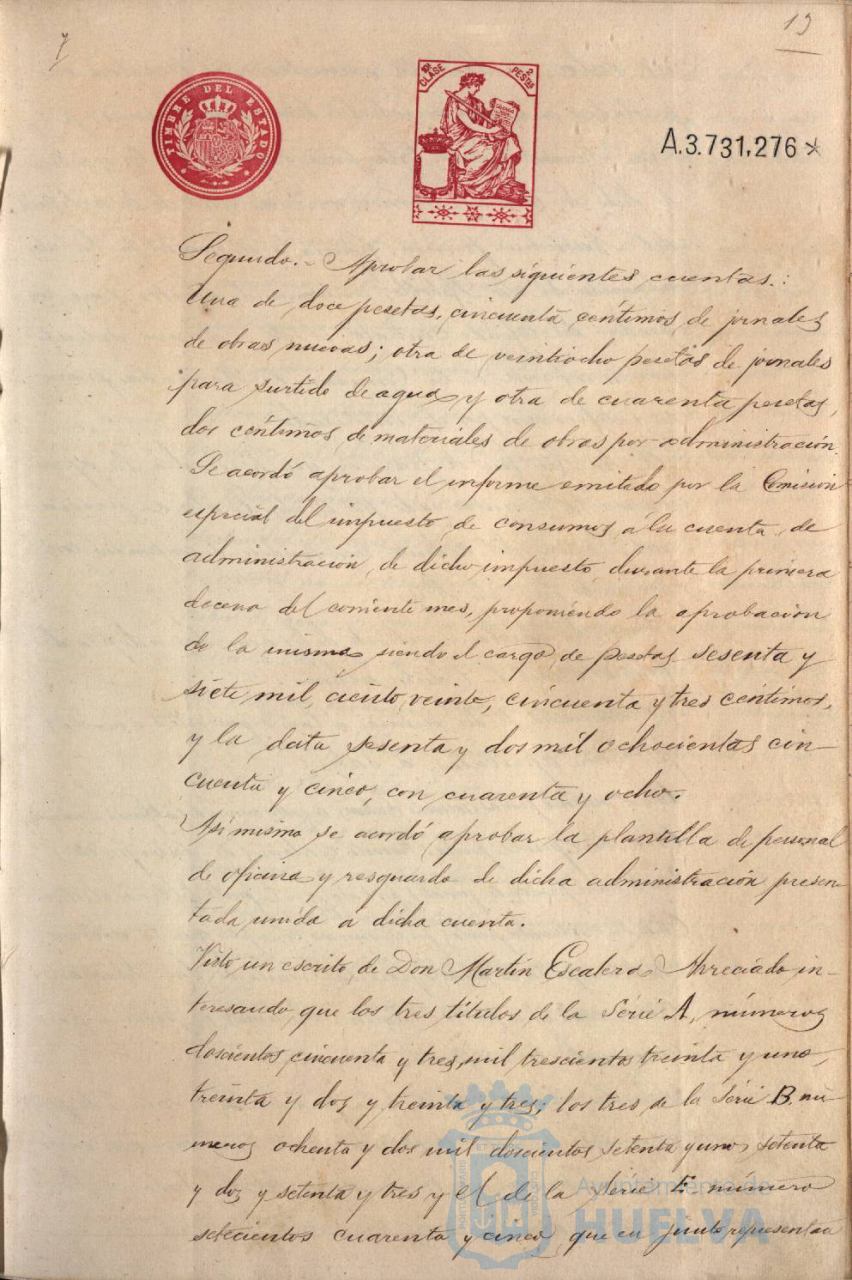 19
TIMBRE DEL ESTADO
10ª CLASE
2 PESTAS
A.3.731,276*
Segundo.- Aprobar las siguientes cuentas.:
Una de doce pesetas, cincuenta céntimos de jornales
de obras nuevas; otra de veintiocho pesetas de jornales
para surtido de agua y otra de cuarenta pesetas,
dos céntimos de materiales de obras por administración.
Se acordó aprobar el informe emitido por la Comisión
especial del impuesto de consumos á la cuenta de
administración de dicho impuesto durante la primera
docena del corriente mes, proponiendo la aprobación
de la misma siendo el cargo de pesetas sesenta y
siete mil, ciento veinte, cincuenta y tres céntimos,
y la data sesenta y dos mil ochocientas cin-
cuenta y cinco, con cuarenta y ocho.
Asímismo se acordó aprobar la plantilla de personal
de oficina y resguardo de dicha administración presen
tada unida a dicha cuenta.
Visto un escrito de Don Martín Escalera in-
teresando que los tres títulos de la Série A, números
doscientos cincuenta y tres, mil trescientos treinta y uno,
treinta y dos y treinta y tres; los tres de la Série B. nú-
meros ochenta y dos mil doscientos setenta y uno, setenta
y dos y setenta y tres y el de la Série E número
setecientos cuarenta y cinco que en junto representan
Ayuntamiento de
HUELVA